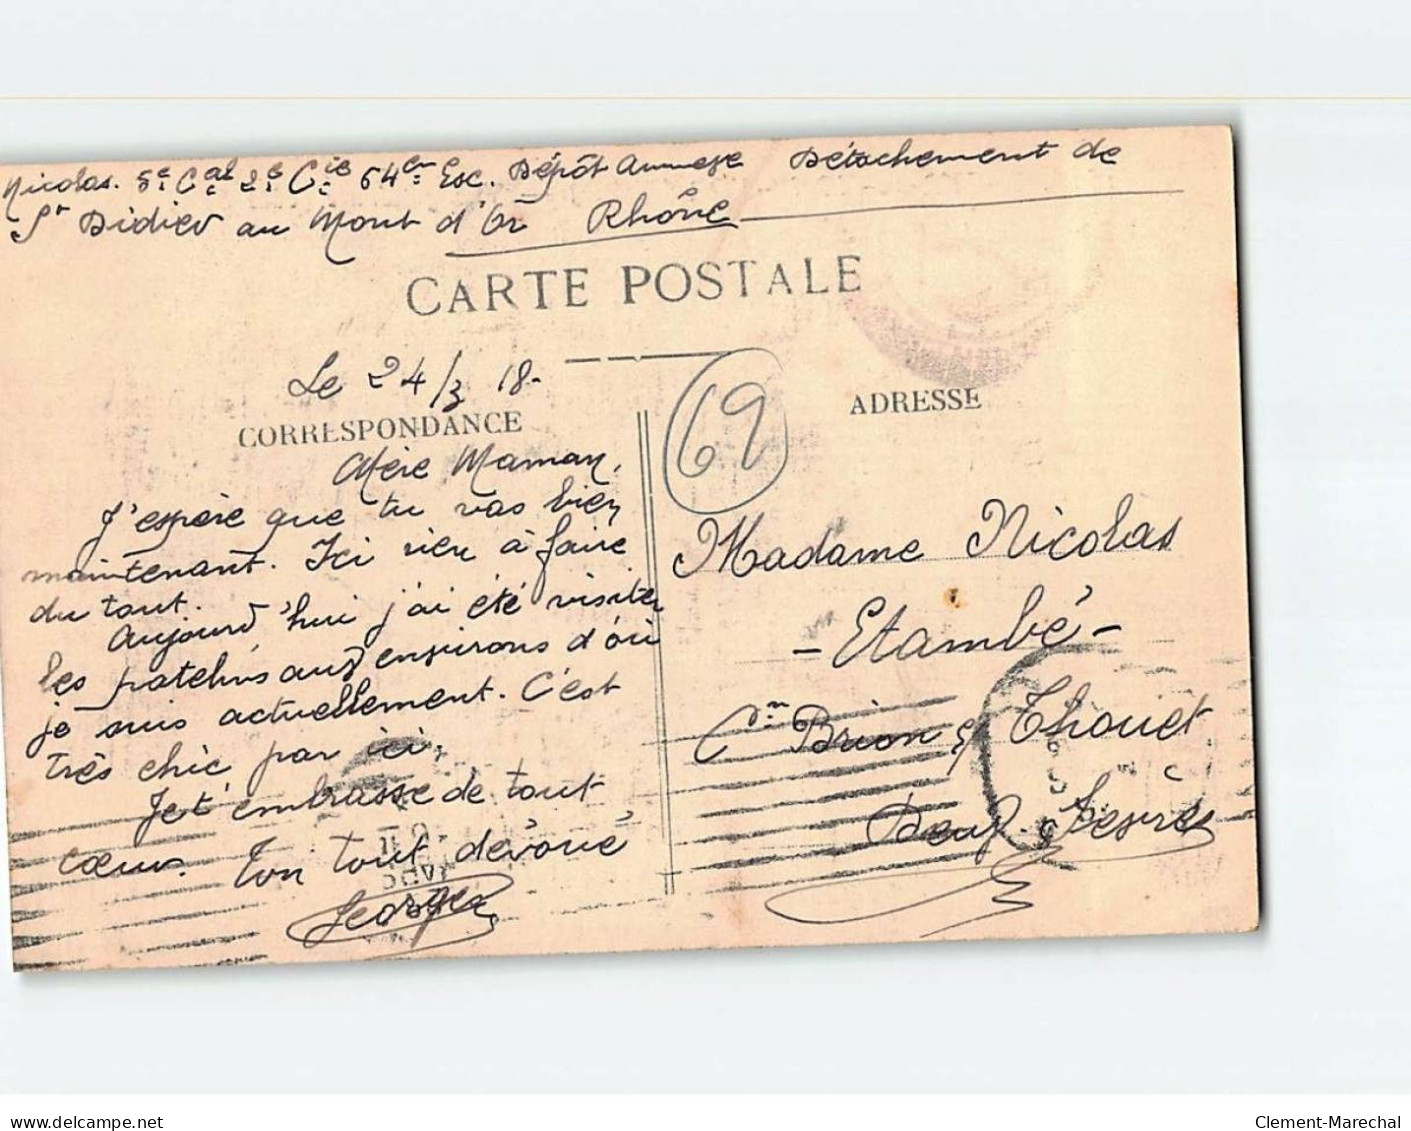 Nicolas. 5e Cal 2e Cie 64em Esc. Dépôt Annexe Détachement de
St Didier au Mont d'Or Rhône
CARTE POSTALE
Le 24/3 18.
69
ADRESSE
CORRESPONDANCE
Chère Maman,
J'espère que tu vas bien
maintenant. Ici rien à faire
du tout.
Aujourd'hui j'ai été visiter
les patelins aux environs d'où
je suis actuellement. C'est
très chic par ici,
Je t'embrasse de tout
cœur. Ton tout dévoué
Georges
Madame Nicolas
- Etambé -
Cn Brion Thouet
Deux-Sèvres
Clement-Marechal